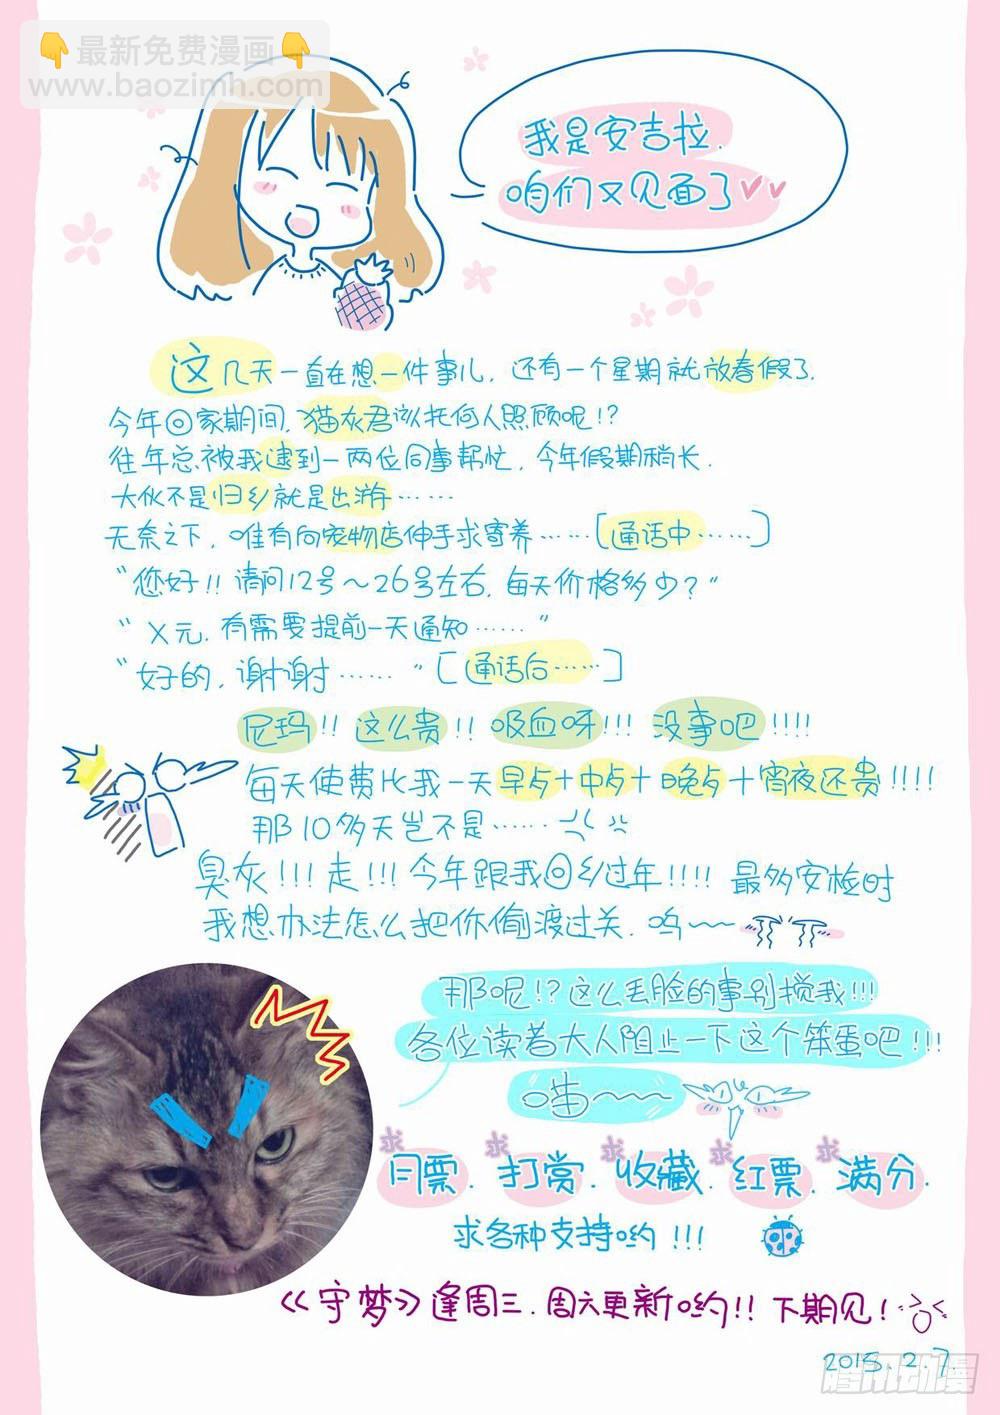 👇最新免费漫画👇
www.baozimh.com
我是安吉拉.
咱们又见面了
这几天一直在想一件事儿, 还有一个星期就放春假了.
今年回家期间, 猫灰君该托何人照顾呢!?
往年总被我逮到一两位同事帮忙, 今年假期稍长.
大伙不是归乡就是出游……
无奈之下, 唯有向宠物店伸手求寄养……[通话中……]
“您好!! 请问12号~26号左右, 每天价格多少?”
“X元, 有需要提前一天通知……”
“好的, 谢谢……” [通话后……]
尼玛!! 这么贵!! 吸血呀!!! 没事吧!!!!
每天使费比我一天早点+中点+晚点+宵夜还贵!!!!
那10多天岂不是……
臭灰!!! 走!!! 今年跟我回乡过年!!!! 最多安检时
我想办法怎么把你偷渡过关. 呜~~
那呢!? 这么丢脸的事别搅我!!!
各位读者大人阻止一下这个笨蛋吧!!!
喵~~~
求月票. 求打赏. 求收藏. 求红票. 求满分.
求各种支持哟!!!
《守梦》逢周三. 周六更新哟!! 下期见!
2015.2.7.
腾讯动漫